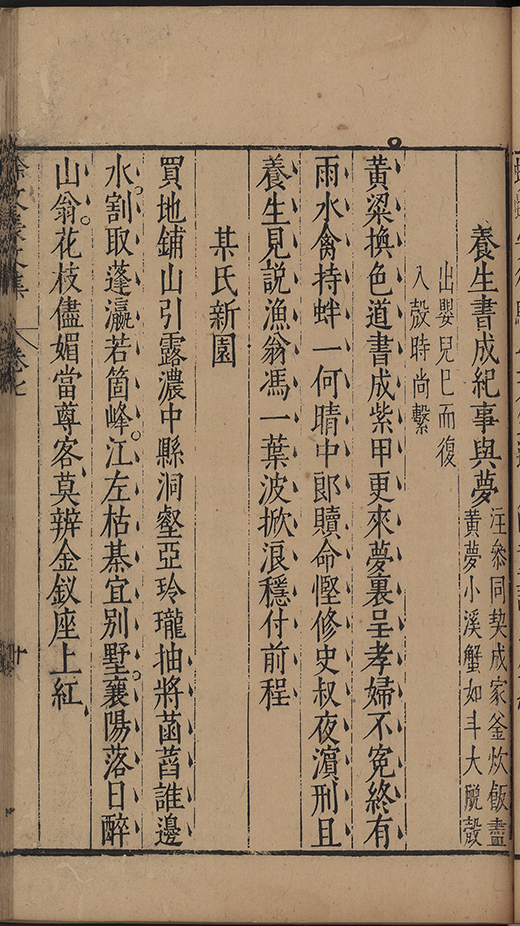 養生書成紀事與夢
注叅同契成家釜炊飯盡
黃夢小溪蟹如斗大脫殼
出嬰兒巳而復
入殼時尚繫
黃粱換色道書成紫甲更來夢裏呈孝婦不寃終有
雨水禽持蚌一何晴中郎贖命慳修史叔夜濵刑且
養生見説漁翁馮一葉波掀浪穩付前程
某氏新園
買地鋪山引露濃中縣洞壑亞玲瓏抽將菡萏誰邊
水割取蓬瀛若箇峰江左枯棊宜別墅襄陽落日醉
山翁花枝儘媚當尊客莫辨金釵座上紅
徐文長文集
卷七
十